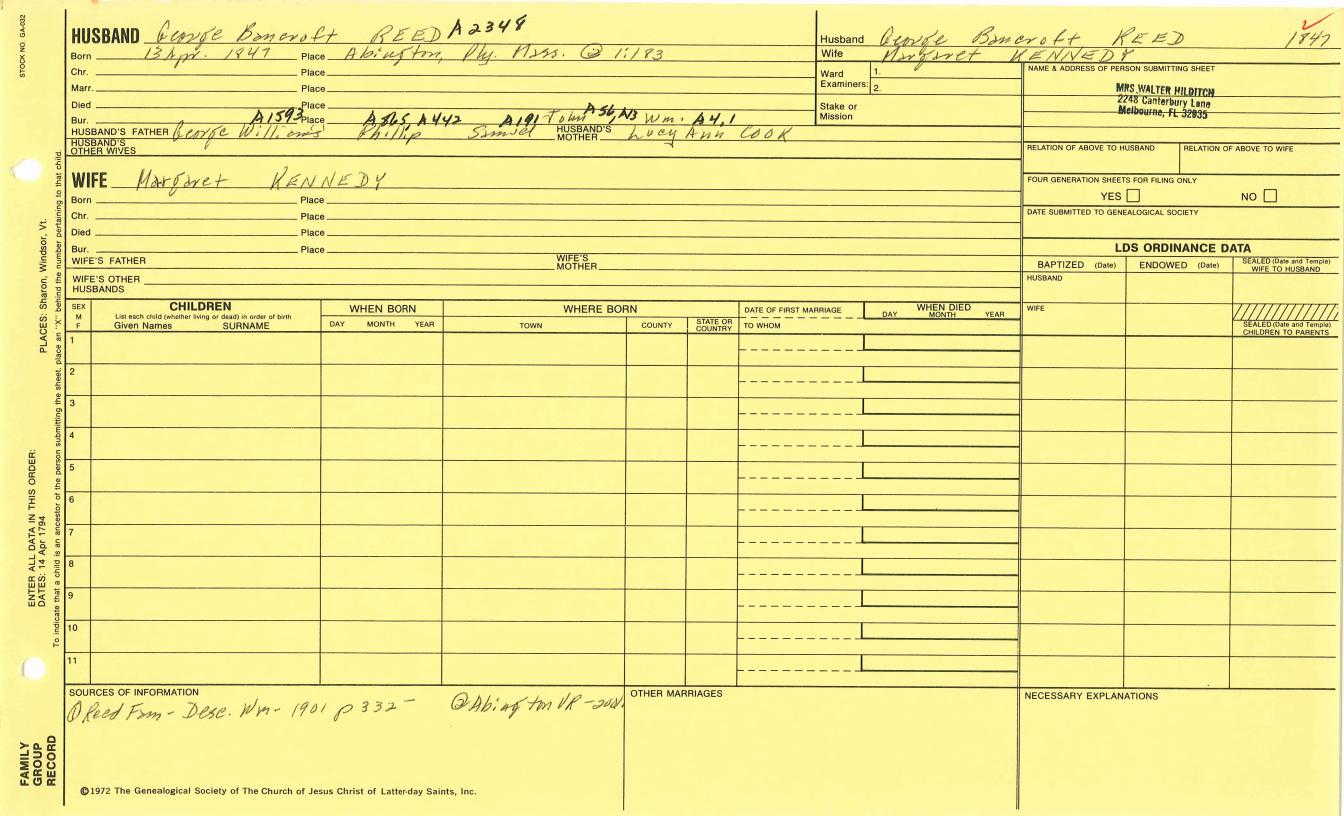 STOCK NO. GA-032
HUSBAND George Bancroft REED A2348
Born 13 Apr. 1847 Place Abington, Ply. Mass. ② 1:183
Chr. Place
Marr. Place
Died Place
Bur. A1593 Place A865, A442 A191 Tom A56,N3 Wm. A4,1
HUSBAND'S FATHER George Williams Phillip Samuel HUSBAND'S MOTHER Lucy Ann COOK
HUSBAND'S OTHER WIVES
WIFE Margaret KENNEDY
Born Place
Chr. Place
Died Place
Bur. Place
WIFE'S FATHER WIFE'S MOTHER
WIFE'S OTHER HUSBANDS
Husband George Bancroft REED 1847
Wife Margaret KENNEDY
Ward Examiners: 1.
2.
Stake or Mission
NAME & ADDRESS OF PERSON SUBMITTING SHEET
MRS. WALTER HILDITCH
2248 Canterbury Lane
Melbourne, FL 32935
RELATION OF ABOVE TO HUSBAND RELATION OF ABOVE TO WIFE
FOUR GENERATION SHEETS FOR FILING ONLY
YES NO
DATE SUBMITTED TO GENEALOGICAL SOCIETY
LDS ORDINANCE DATA
BAPTIZED (Date) ENDOWED (Date) SEALED (Date and Temple) WIFE TO HUSBAND
HUSBAND
WIFE
SEALED (Date and Temple) CHILDREN TO PARENTS
SEX M F
CHILDREN
List each child (whether living or dead) in order of birth
Given Names SURNAME
WHEN BORN
DAY MONTH YEAR
WHERE BORN
TOWN COUNTY STATE OR COUNTRY
DATE OF FIRST MARRIAGE
TO WHOM
WHEN DIED
DAY MONTH YEAR
1
2
3
4
5
6
7
8
9
10
11
SOURCES OF INFORMATION
① Reed Fam - Desc. Wm - 1901 p 332 - ② Abington VR -
OTHER MARRIAGES
NECESSARY EXPLANATIONS
©1972 The Genealogical Society of The Church of Jesus Christ of Latter-day Saints, Inc.
PLACES: Sharon, Windsor, Vt.
ENTER ALL DATA IN THIS ORDER:
DATES: 14 Apr 1794
To indicate that a child is an ancestor of the person submitting the sheet, place an "X" behind the number pertaining to that child.
FAMILY
GROUP
RECORD